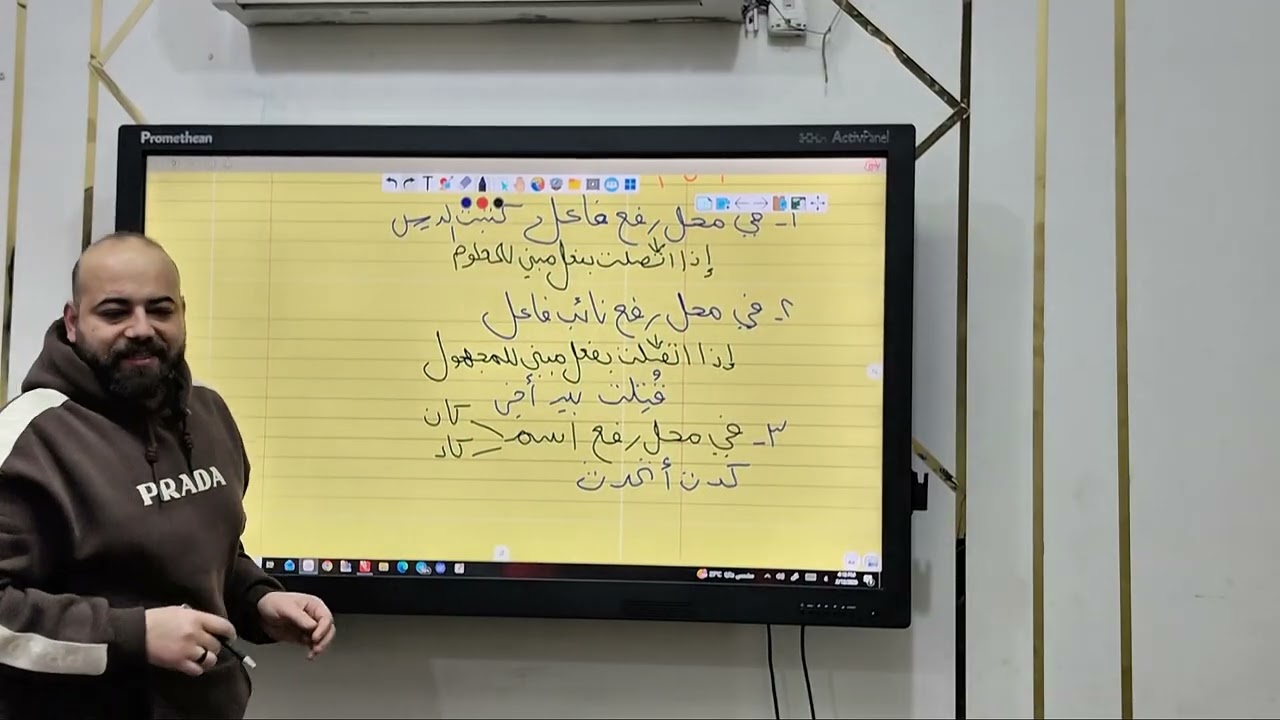 Promethean
ActivPanel
١- في محل رفع فاعل كتبت الدرس
إذا اتصلت بفعل مبني للمعلوم
٢- في محل رفع نائب فاعل
إذا اتصلت بفعل مبني للمجهول
قُتِلت بيد أخي
٣- في محل رفع اسم كان
كاد
كدت أتحدث
PRADA